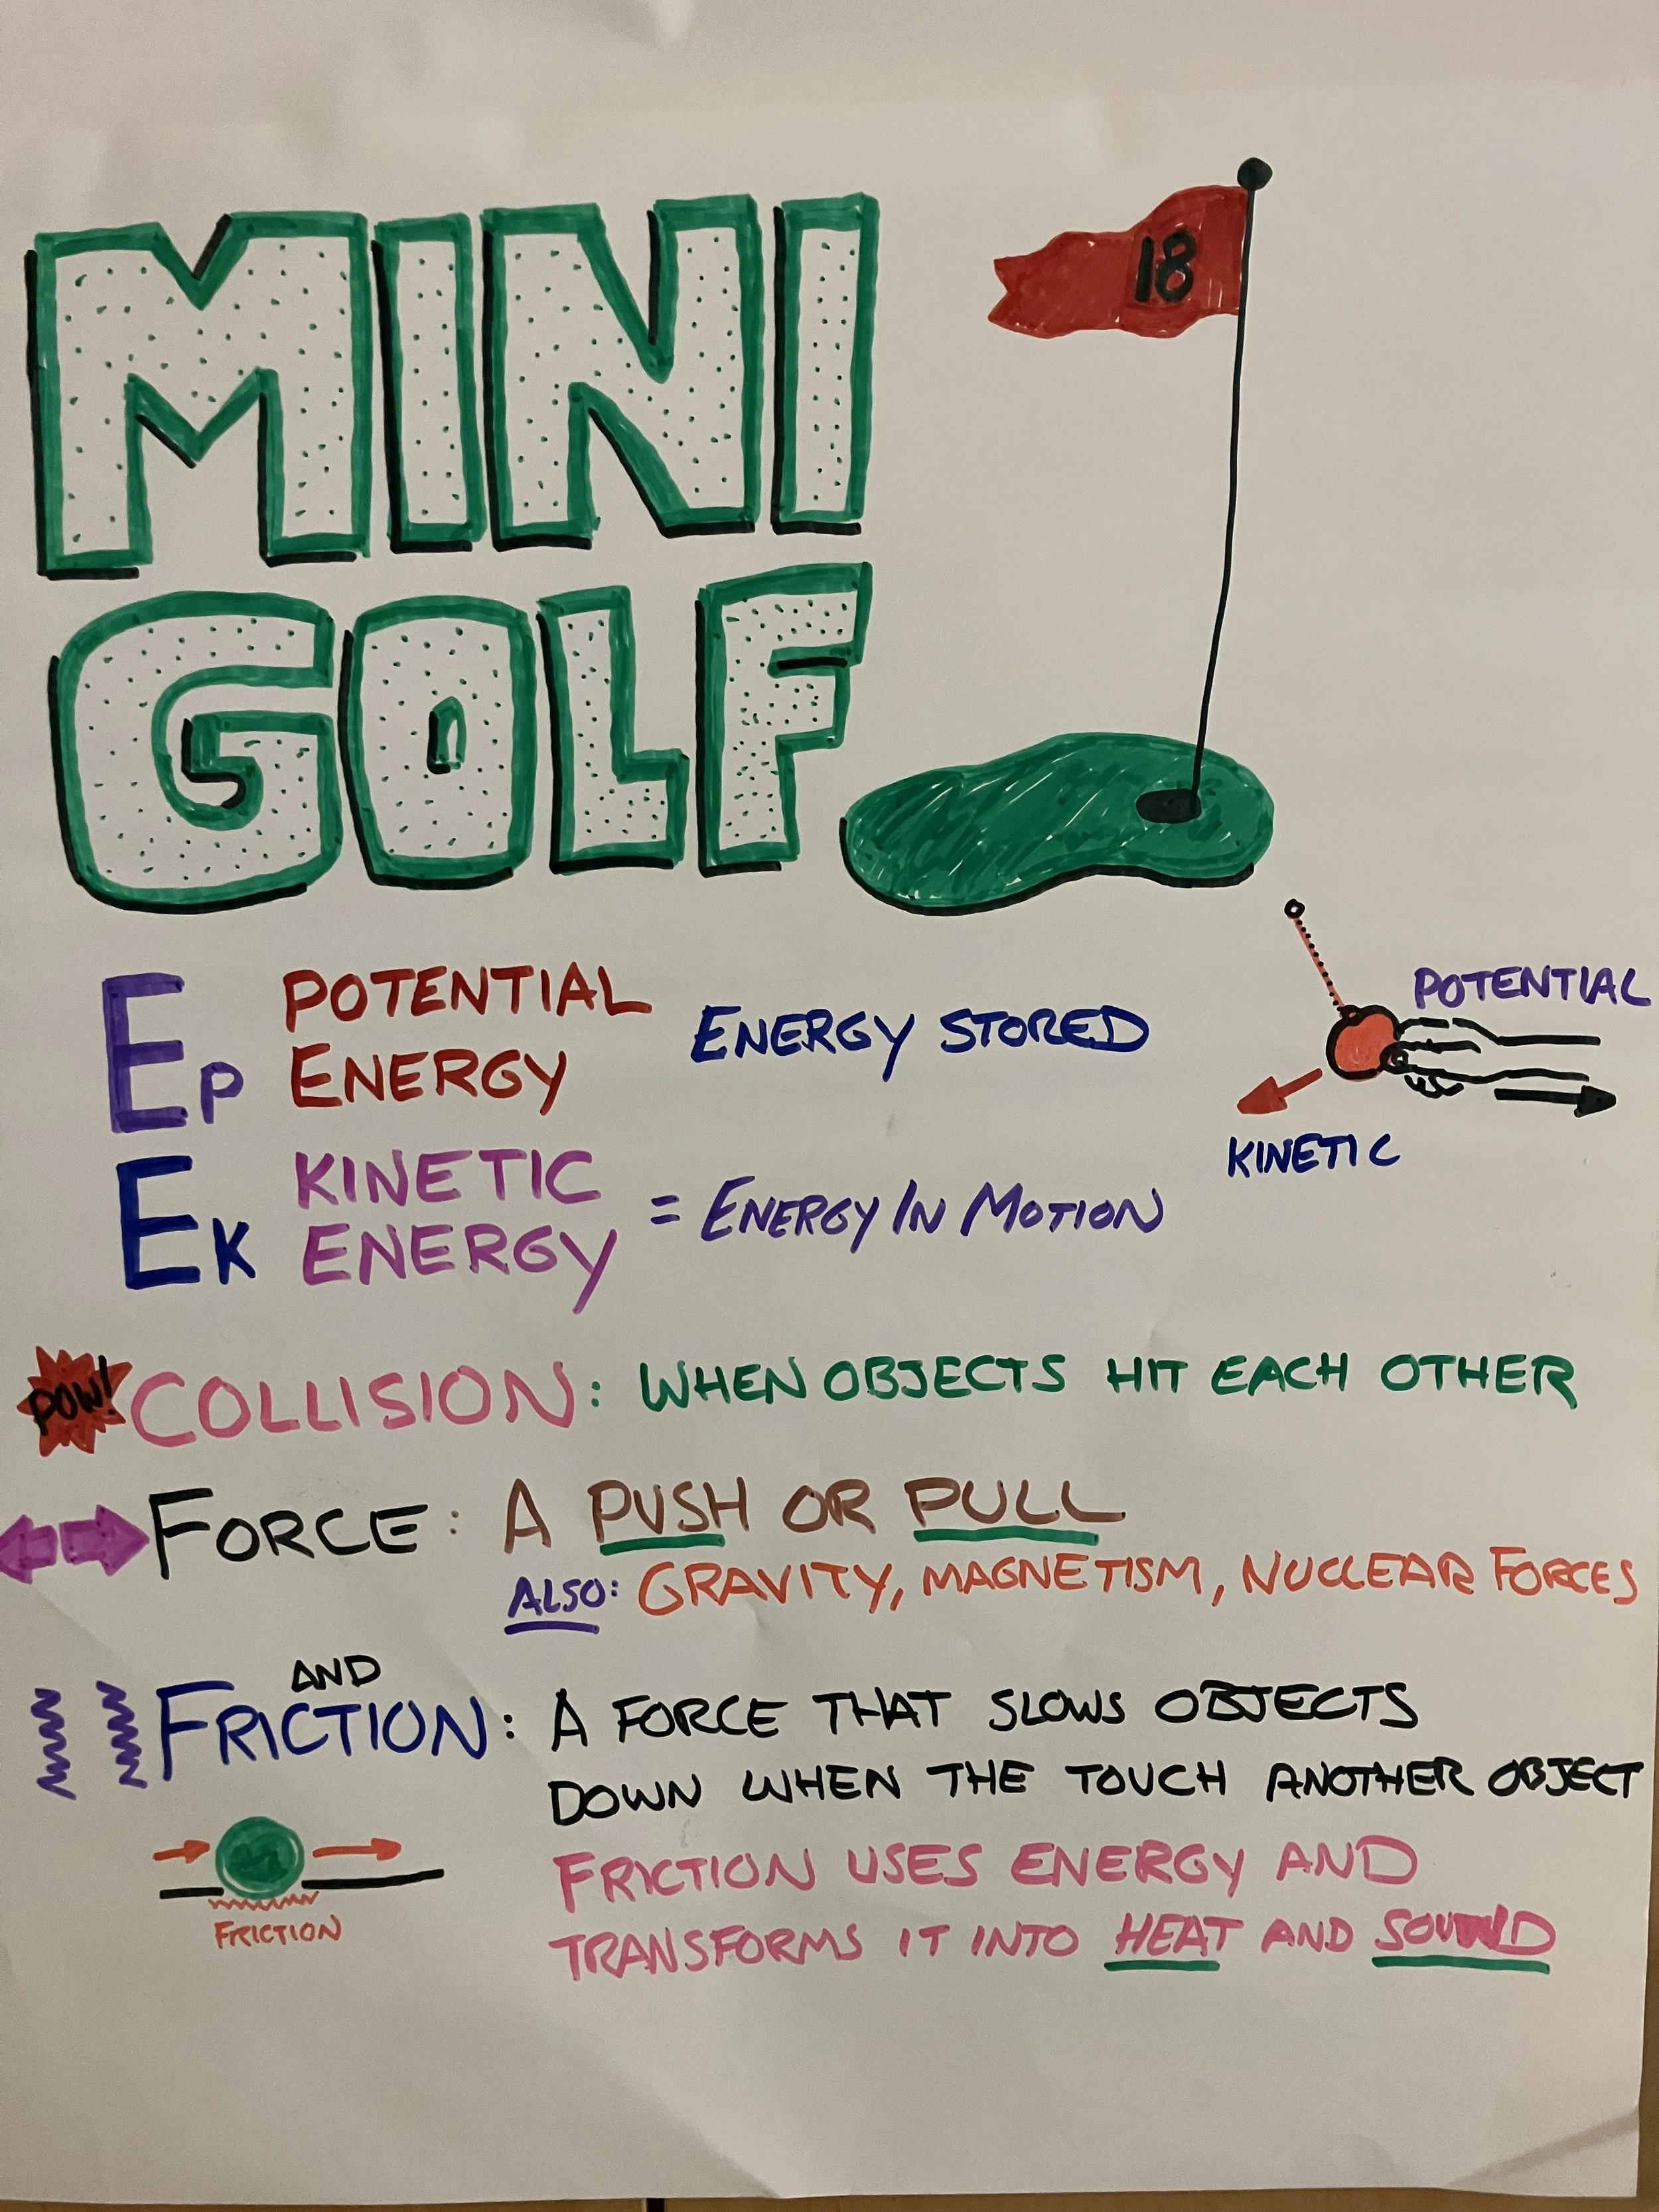 MINI
18
GOLF
EP POTENTIAL ENERGY ENERGY STORED
POTENTIAL
KINETIC
EK KINETIC ENERGY = ENERGY IN MOTION
POW! COLLISION: WHEN OBJECTS HIT EACH OTHER
FORCE: A PUSH OR PULL
ALSO: GRAVITY, MAGNETISM, NUCLEAR FORCES
AND
FRICTION: A FORCE THAT SLOWS OBJECTS
DOWN WHEN THE TOUCH ANOTHER OBJECT
FRICTION USES ENERGY AND
TRANSFORMS IT INTO HEAT AND SOUND
FRICTION